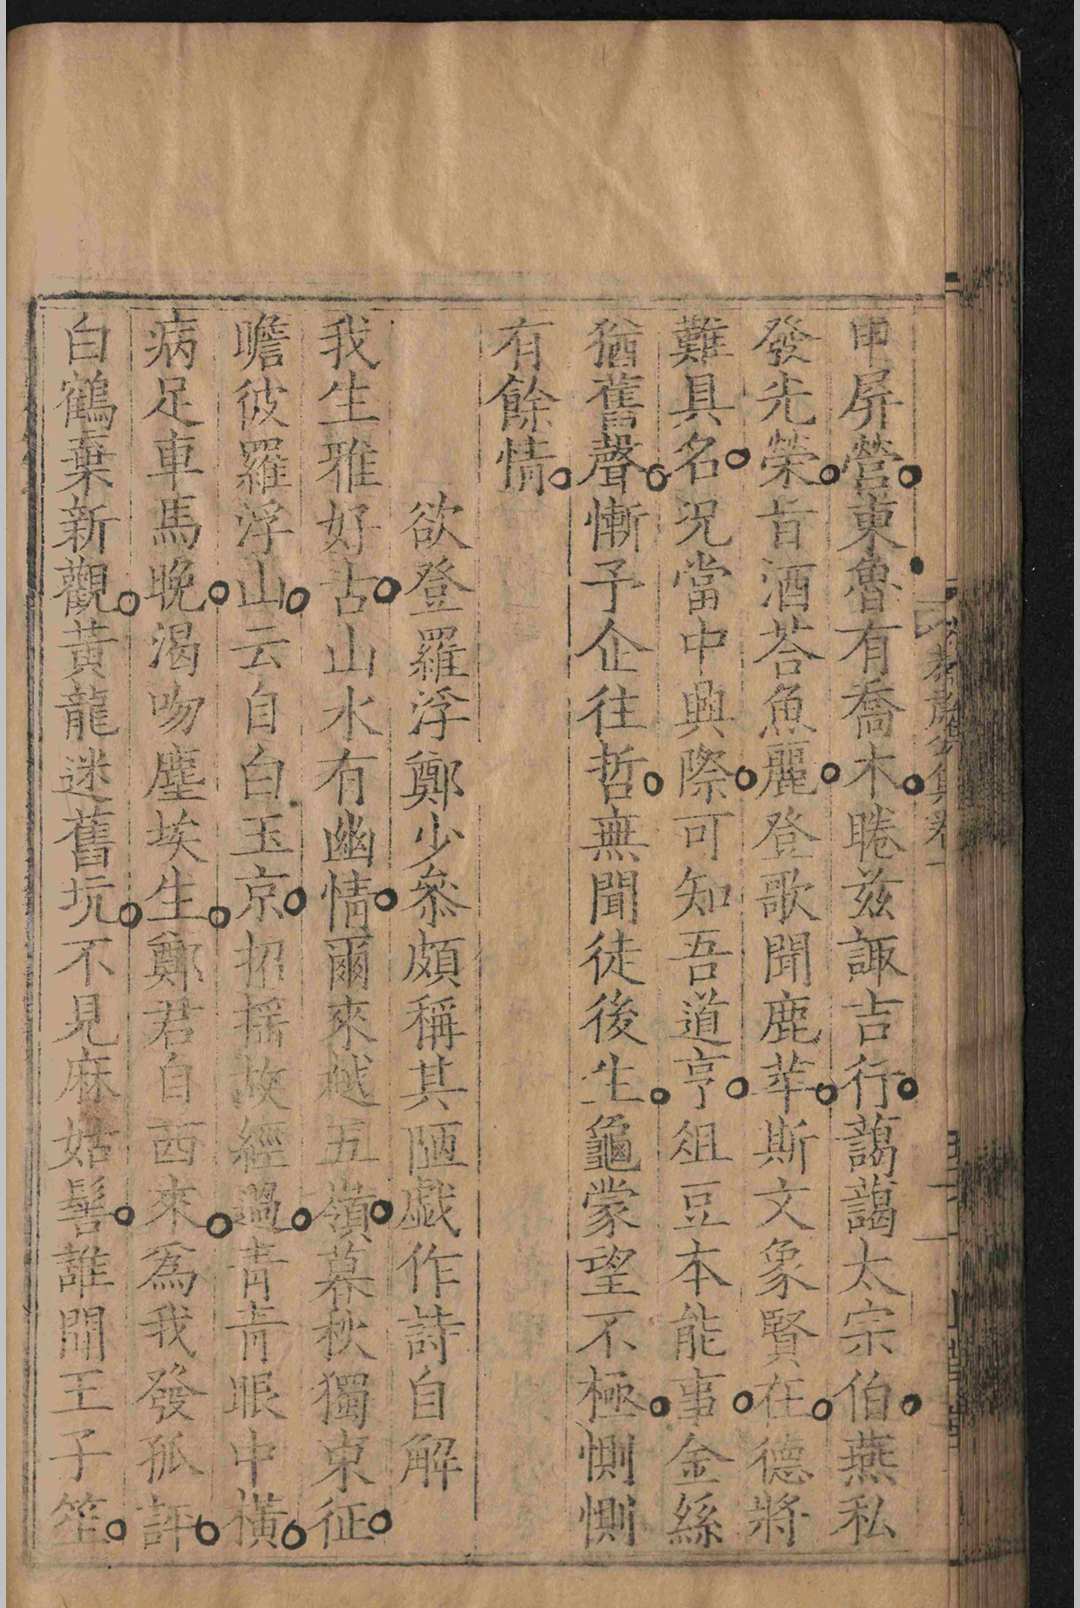 甲屏營東魯有喬木睠兹諏吉行藹藹太宗伯燕私
發光榮旨酒荅魚麗登歌聞鹿苹斯文象賢在德將
難具名況當中興際可知吾道亨俎豆本能事金絲
猶舊聲慚予企往哲無聞徒後生龜蒙望不極惻惻
有餘情
欲登羅浮鄭少叅頗稱其陋戯作詩自解
我生雅好古山水有幽情爾來越五嶺暮秋獨東征
瞻彼羅浮山云自白玉京招摇故經過青青眼中橫
病足車馬晚渴吻塵埃生鄭君自西來為我發孤評
白鶴棄新觀黃龍迷舊坑不見麻姑髻誰聞王子笙